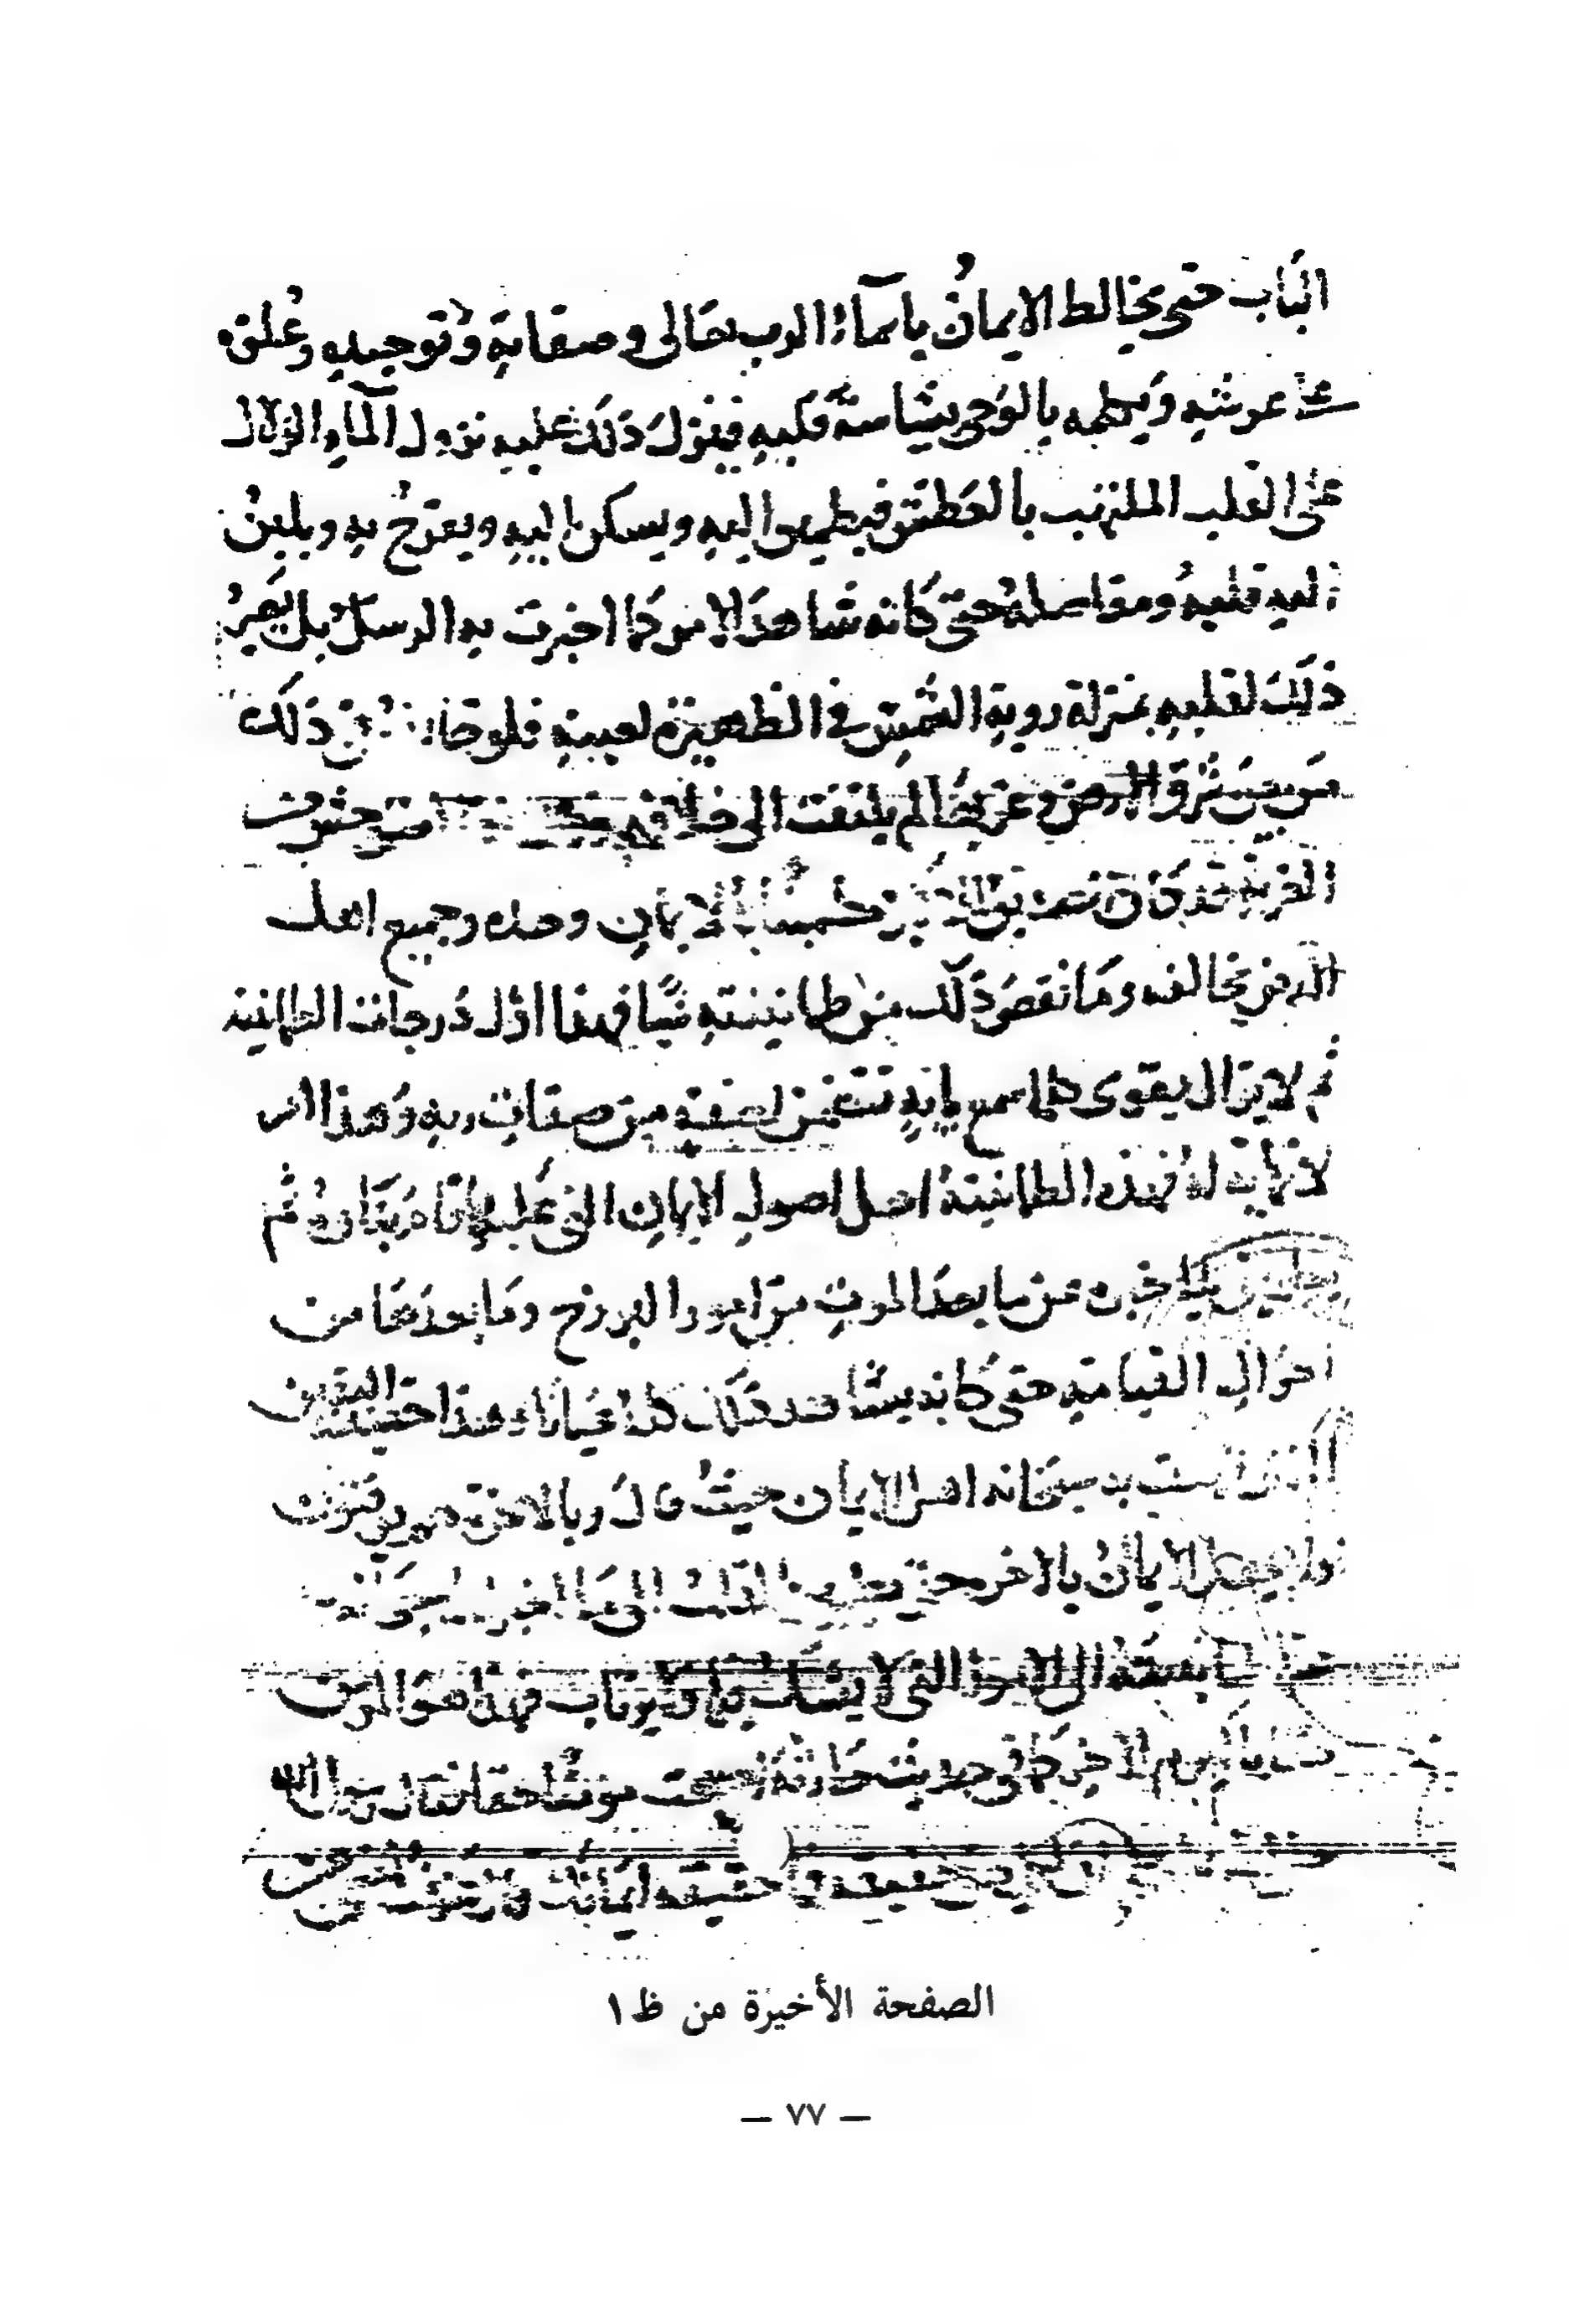 الباب حتى يخالط الايمان باسماء الرب تعالى وصفاته وتوحيده وعلوه
على عرشه وتكلمه بالوحي بشاشة قلبه فينزل ذلك عليه نزول الماء الزلال
على القلب الملتهب بالعطش فيطمئن اليه ويسكن اليه ويفرح به ويلين
اليه قلبه ومفاصله حتى كانه شاهد الامر كما اخبرت به الرسل بل يصير
ذلك لقلبه بمنزلة روية الشمس في الظهيرة لعينه فلو خالفه في ذلك
من بين شرق الارض وغربها لم يلتفت الى خلافهم استوحش من
الغربة قد كان الصديق الاكبر مطمينا بالايمان وحده وجميع اهل
الارض يخالفه وما نقص ذلك من طمانينته شيا فهذا اول درجات الطمانينه
ثم لا يزال يقوى كلما سمع باية تتضمن لصفة من صفات ربه وهذا امر
لا نهاية له فهذه الطمانينة اصل اصول الايمان التي عليها قام بناوه ثم
يطمئن الى خبره عن ما بعد الموت من امور البرزخ وما بعدها من
احوال القيامة حتى كانه يشاهد ذلك كله عيانا وهذا حقيقة اليقين
الذي وصف به سبحانه اهل الايمان حيث قال وبالاخرة هم يوقنون
فلا يحصل الايمان بالاخرة حتى يطمئن القلب الى ما اخبر
التي لا يشك فيها ولا يرتاب فهذا هو المومن
باليوم الاخر كما في حديث حارثة اصبحت مومنا حقا فقال رسول الله
حقيقة فما حقيقة ايمانك قال عزفت نفسي عن
الصفحة الأخيرة من ظ١
— ٧٧ —